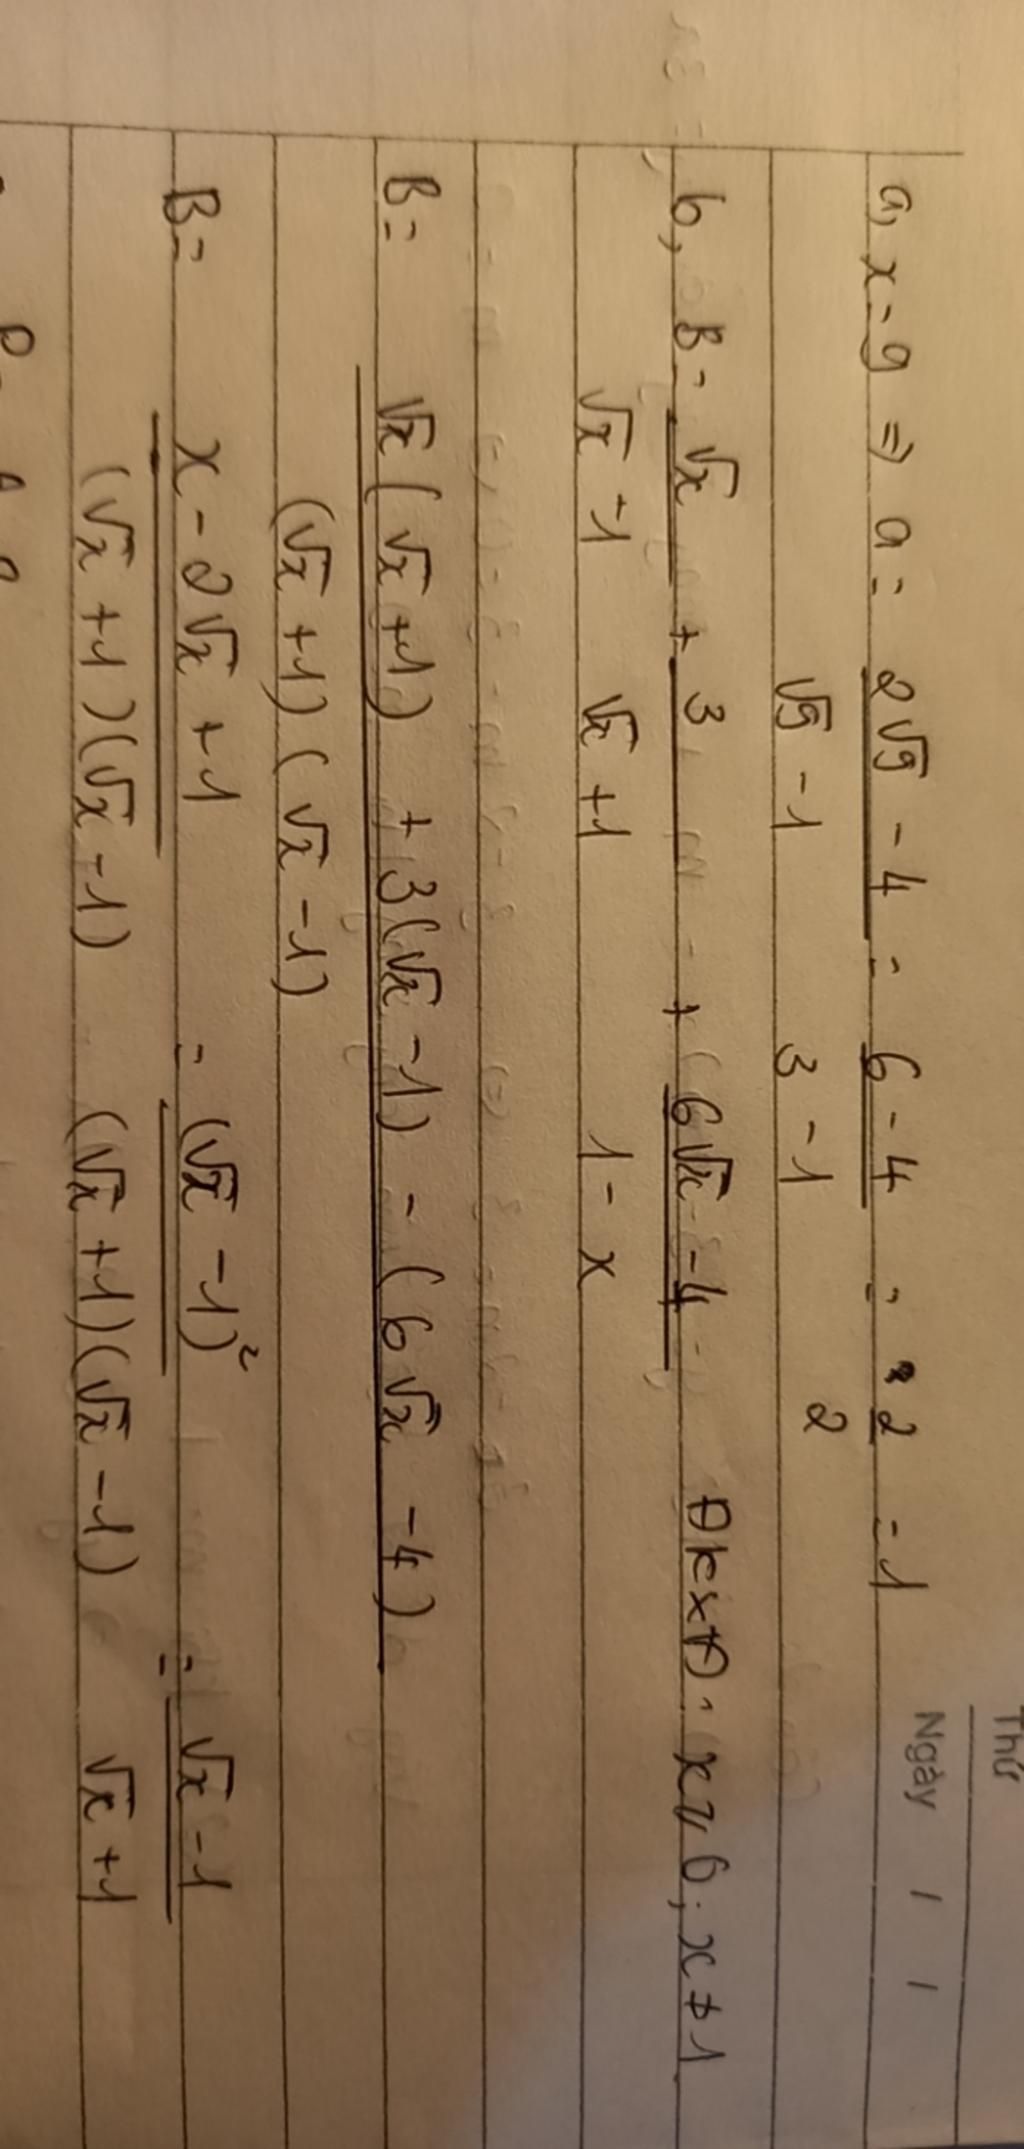 Thứ
Ngày / /
a, x = 9 => a = (2√9 - 4)/(√9 - 1) = (6 - 4)/(3 - 1) = 2/2 = 1
b, B = √x/(√x - 1) + 3/(√x + 1) + (6√x - 4)/(1 - x) ĐKXĐ: x ≥ 0; x ≠ 1
B = (√x(√x + 1) + 3(√x - 1) - (6√x - 4))/((√x + 1)(√x - 1))
B = (x - 2√x + 1)/((√x + 1)(√x - 1)) = (√x - 1)²/((√x + 1)(√x - 1)) = (√x - 1)/(√x + 1)